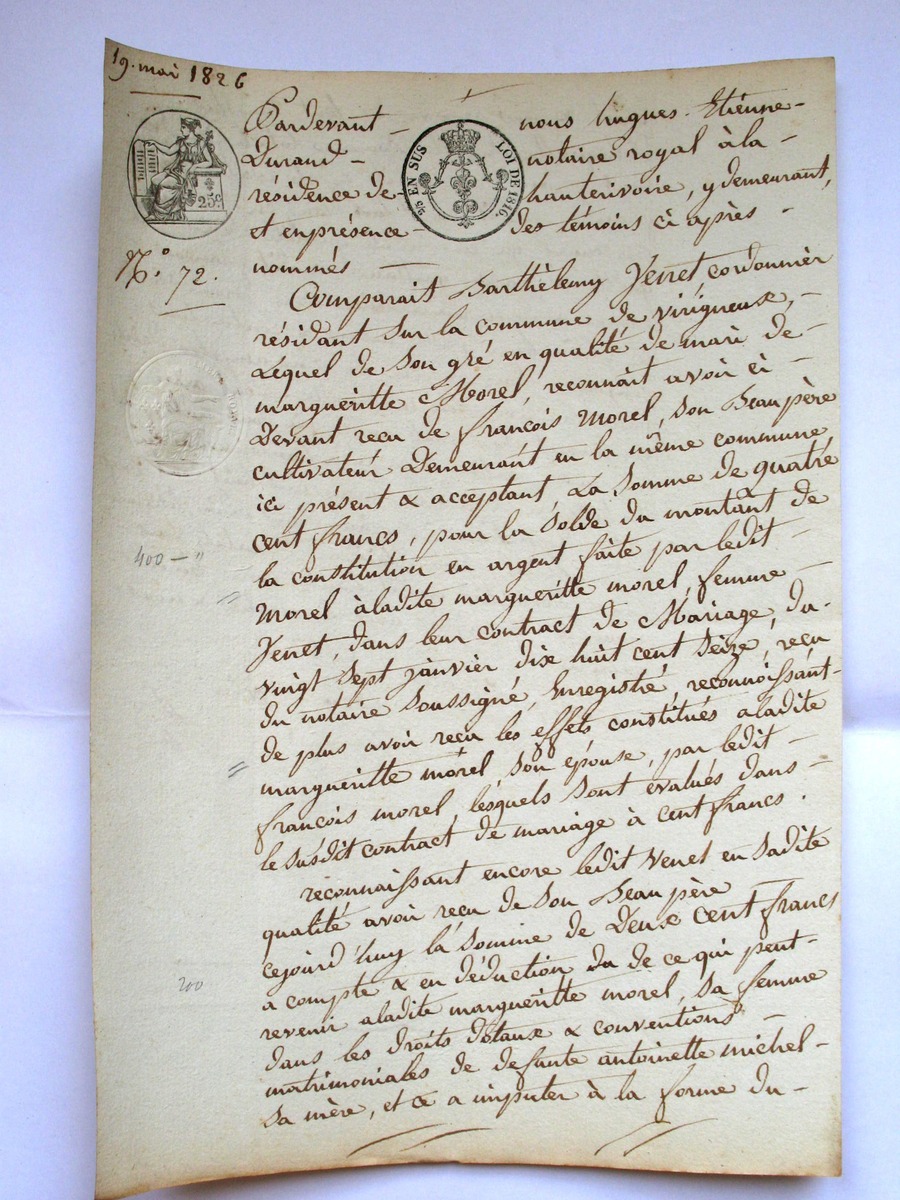 19. mai 1826
Pardevant nous hugues Etienne
Durand notaire royal à la
résidence de chanterivoire, y demeurant,
et en présence des témoins ci après
nommés
25c.
5/c EN SUS LOI DE 1816.
N.o 72.
Comparait Barthèlemy Venet cordonnier
résidant sur la commune de virigneuse,
Lequel de son gré en qualité de mari de
margueritte Morel, reconnait avoir ci
Devant recu de françois morel, son Beaupère
cultivateur Demeurant en la même commune
ici présent & acceptant, La somme de quatre
cent francs, pour la solde du montant de
400 – "
la constitution en argent faite par ledit
morel àladite margueritte morel femme
Venet, dans leur contract de Mariage, du
vingt sept janvier dix huit cent seize, reçu
du notaire soussigné, Enregistré, reconnoissant
de plus avoir reçu les effets constitués aladite
margueritte morel, son épouse, par ledit
françois morel, lesquels sont évalués dans
le susdit contract de mariage à cent francs.
reconnaissant encore ledit Venet en sadite
qualité avoir recu de son Beaupère
cejourd'huy la somme de Deux cent francs
200
a compte & en déduction de ce qui peut
revenir aladite margueritte morel, sa femme
dans les droits &
conventions
matrimoniales de defunte antoinette michel
sa mère, et ce a imputer à la forme du